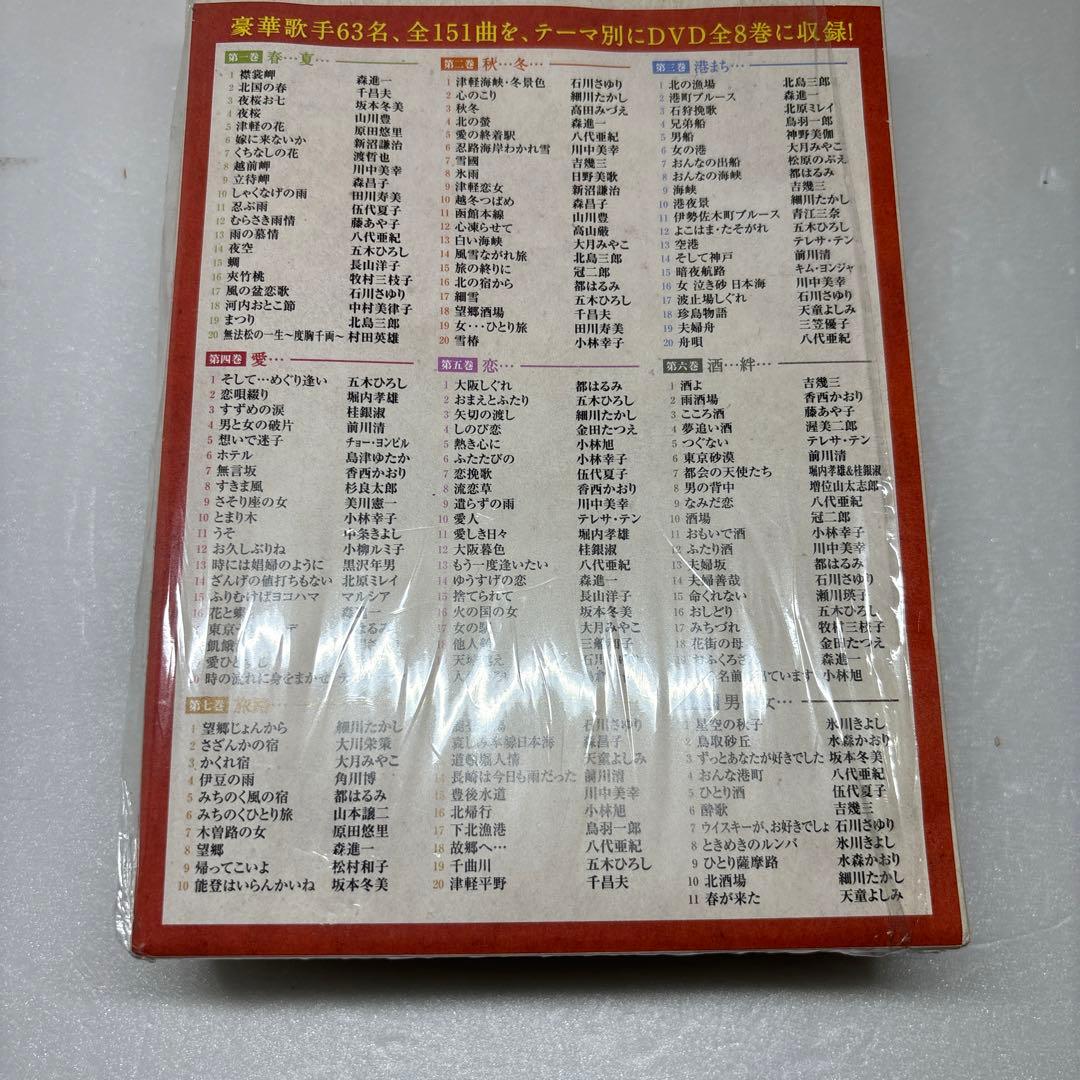 豪華歌手63名、全151曲を、テーマ別にDVD全8巻に収録!
第一巻 春…夏…
1 襟裳岬 森進一
2 北国の春 千昌夫
3 夜桜お七 坂本冬美
4 夜桜 山川豊
5 津軽の花 原田悠里
6 嫁に来ないか 新沼謙治
7 くちなしの花 渡哲也
8 越前岬 川中美幸
9 立待岬 森昌子
10 しゃくなげの雨 田川寿美
11 忍ぶ雨 伍代夏子
12 むらさき雨情 藤あや子
13 雨の慕情 八代亜紀
14 夜空 五木ひろし
15 蜩 長山洋子
16 夾竹桃 牧村三枝子
17 風の盆恋歌 石川さゆり
18 河内おとこ節 中村美律子
19 まつり 北島三郎
20 無法松の一生〜度胸千両〜 村田英雄
第二巻 秋…冬…
1 津軽海峡・冬景色 石川さゆり
2 心のこり 細川たかし
3 秋冬 高田みづえ
4 北の螢 森進一
5 愛の終着駅 八代亜紀
6 忍路海岸わかれ雪 川中美幸
7 雪國 吉幾三
8 氷雨 日野美歌
9 津軽恋女 新沼謙治
10 越冬つばめ 森昌子
11 函館本線 山川豊
12 心凍らせて 高山厳
13 白い海峡 大月みやこ
14 風雪ながれ旅 北島三郎
15 旅の終りに 冠二郎
16 北の宿から 都はるみ
17 細雪 五木ひろし
18 望郷酒場 千昌夫
19 女・・・ひとり旅 田川寿美
20 雪椿 小林幸子
第三巻 港まち…
1 北の漁場 北島三郎
2 港町ブルース 森進一
3 石狩挽歌 北原ミレイ
4 兄弟船 鳥羽一郎
5 男船 神野美伽
6 女の港 大月みやこ
7 おんなの出船 松原のぶえ
8 おんなの海峡 都はるみ
9 海峡 吉幾三
10 港夜景 細川たかし
11 伊勢佐木町ブルース 青江三奈
12 よこはま・たそがれ 五木ひろし
13 空港 テレサ・テン
14 そして神戸 前川清
15 暗夜航路 キム・ヨンジャ
16 女 泣き砂 日本海 川中美幸
17 波止場しぐれ 石川さゆり
18 珍島物語 天童よしみ
19 夫婦舟 三笠優子
20 舟唄 八代亜紀
第四巻 愛…
1 そして…めぐり逢い 五木ひろし
2 恋唄綴り 堀内孝雄
3 すずめの涙 桂銀淑
4 男と女の破片 前川清
5 想いで迷子 チョー・ヨンピル
6 ホテル 島津ゆたか
7 無言坂 香西かおり
8 すきま風 杉良太郎
9 さそり座の女 美川憲一
10 とまり木 小林幸子
11 うそ 中条きよし
12 お久しぶりね 小柳ルミ子
13 時には娼婦のように 黒沢年男
14 ざんげの値打ちもない 北原ミレイ
15 ふりむけばヨコハマ マルシア
16 花と蝶 森進一
東京 デ はるみ
飢餓
愛ひと
時の流れに身をまかせ
第五巻 恋…
1 大阪しぐれ 都はるみ
2 おまえとふたり 五木ひろし
3 矢切の渡し 細川たかし
4 しのび恋 金田たつえ
5 熱き心に 小林旭
6 ふたたびの 小林幸子
7 恋挽歌 伍代夏子
8 流恋草 香西かおり
9 遣らずの雨 川中美幸
10 愛人 テレサ・テン
11 愛しき日々 堀内孝雄
12 大阪暮色 桂銀淑
13 もう一度逢いたい 八代亜紀
14 ゆうすげの恋 森進一
15 捨てられて 長山洋子
16 火の国の女 坂本冬美
17 女の駅 大月みやこ
18 他人 三船和子
天城越え 石川
第六巻 酒…絆…
1 酒よ 吉幾三
2 雨酒場 香西かおり
3 こころ酒 藤あや子
4 夢追い酒 渥美二郎
5 つぐない テレサ・テン
6 東京砂漠 前川清
7 都会の天使たち 堀内孝雄&桂銀淑
8 男の背中 増位山太志郎
9 なみだ恋 八代亜紀
10 酒場 冠二郎
11 おもいで酒 小林幸子
12 ふたり酒 川中美幸
13 夫婦坂 都はるみ
14 夫婦善哉 石川さゆり
15 命くれない 瀬川瑛子
16 おしどり 五木ひろし
17 みちづれ 牧村三枝子
18 花街の母 金田たつえ
おふくろさ 森進一
名前 出ています 小林旭
第七巻 旅路…
1 望郷じょんから 細川たかし
2 さざんかの宿 大川栄策
3 かくれ宿 大月みやこ
4 伊豆の雨 角川博
5 みちのく風の宿 都はるみ
6 みちのくひとり旅 山本譲二
7 木曽路の女 原田悠里
8 望郷 森進一
9 帰ってこいよ 松村和子
10 能登はいらんかいね 坂本冬美
石川さゆり
哀しみ本線日本海 森昌子
道頓堀人情 天童よしみ
14 長崎は今日も雨だった 前川清
15 豊後水道 川中美幸
16 北帰行 小林旭
17 下北漁港 鳥羽一郎
18 故郷へ… 八代亜紀
19 千曲川 五木ひろし
20 津軽平野 千昌夫
男 女…
1 星空の秋子 氷川きよし
2 鳥取砂丘 水森かおり
3 ずっとあなたが好きでした 坂本冬美
4 おんな港町 八代亜紀
5 ひとり酒 伍代夏子
6 酔歌 吉幾三
7 ウイスキーが、お好きでしょ 石川さゆり
8 ときめきのルンバ 氷川きよし
9 ひとり薩摩路 水森かおり
10 北酒場 細川たかし
11 春が来た 天童よしみ